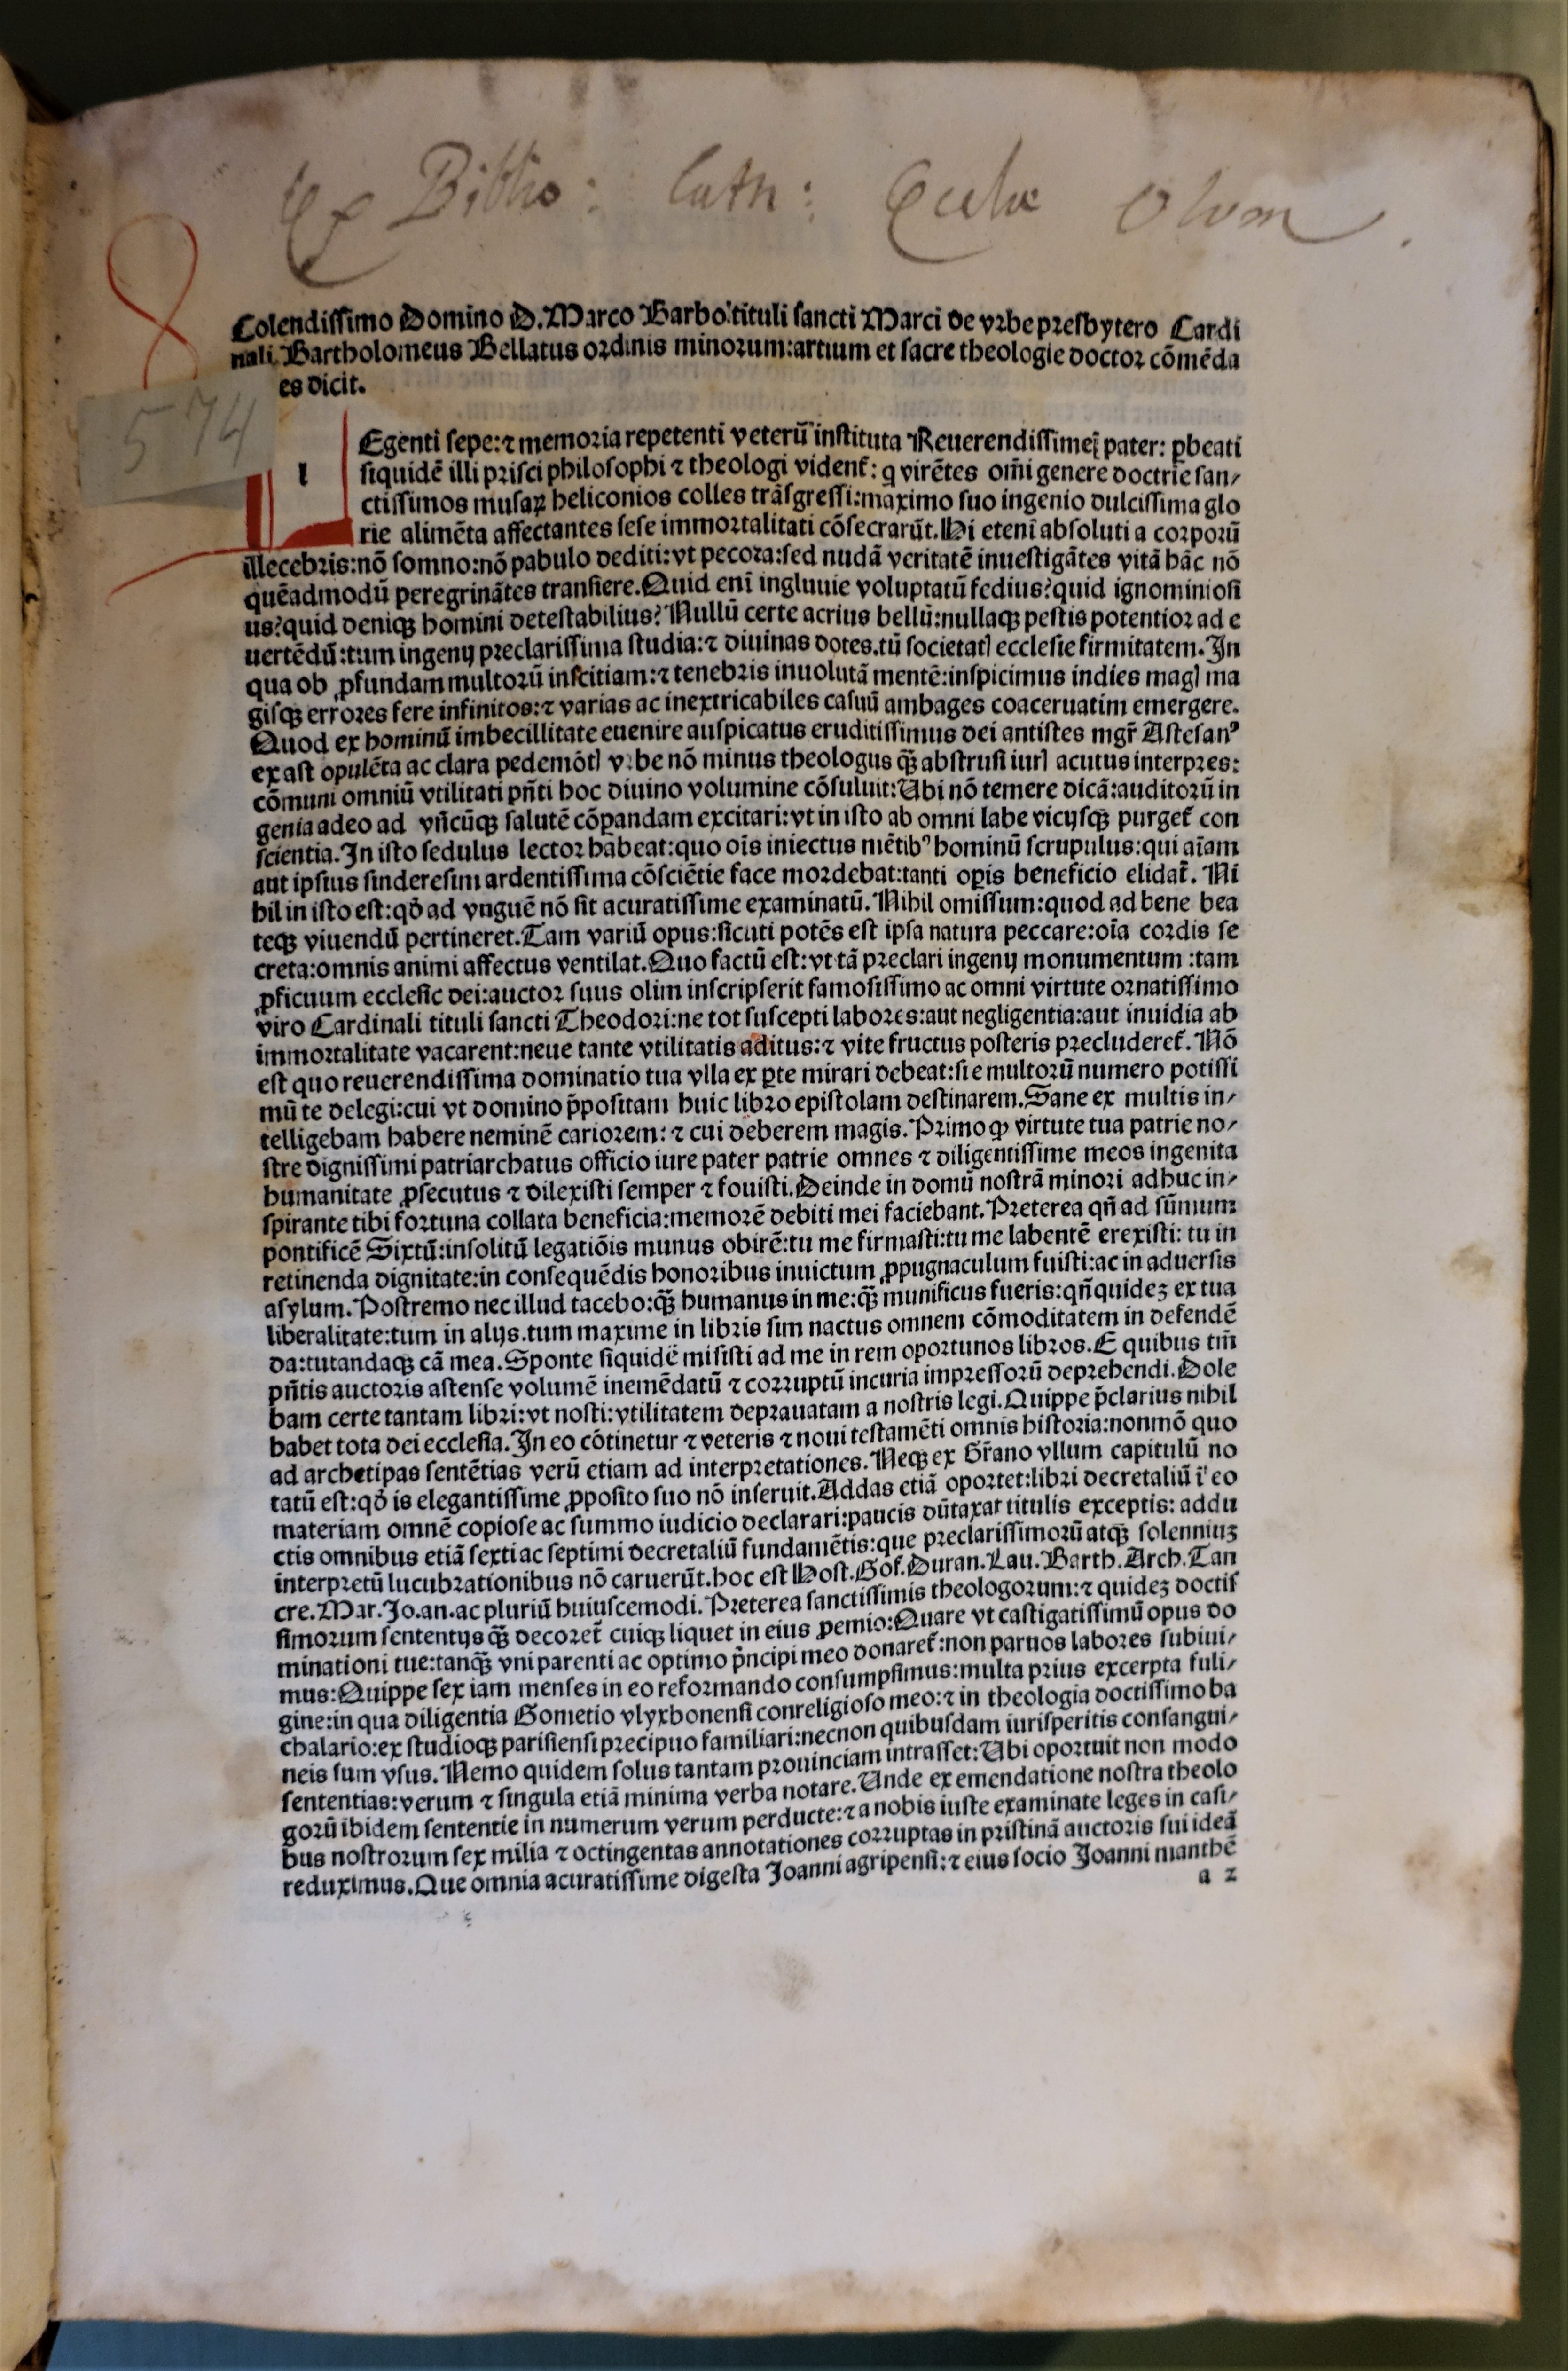 Ex Biblio: Cath: Eccliae Olom.
574
Colendissimo Domino D. Marco Barbo: tituli sancti Marci de vrbe presbytero Cardi
nali. Bartholomeus Bellatus ordinis minorum: artium et sacre theologie doctor cōmēda
es dicit.
l
Egenti sepe: ⁊ memoria repetenti veterū instituta Reuerendissimeq̨ pater: ꝑbeati
siquidē illi prisci philosophi ⁊ theologi videnṫ: q virētes om̄i genere doctrīe san⸗
ctissimos musaꝝ heliconios colles trāsgressi: maximo suo ingenio dulcissima glo
rie alimēta affectantes sese immortalitati cōsecrarūt. Hi etenī absoluti a corporū
illecebris: nō somno: nō pabulo dediti: vt pecora: sed nudā veritatē inuestigātes vitā hāc nō
quēadmodū peregrinātes transiere. Quid enī ingluuie voluptatū fedius? quid ignominiosi
us? quid deniqꝫ homini detestabilius? Nullū certe acrius bellū: nullaqꝫ pestis potentior ad e
uertēdū: tum ingenij preclarissima studia: ⁊ diuinas dotes. tū societatꝭ ecclesie firmitatem. In
qua ob ꝓfundam multorū inscitiam: ⁊ tenebris inuolutā mentē: inspicimus indies magꝭ ma
gisqꝫ errores fere infinitos: ⁊ varias ac inextricabiles casuū ambages coaceruatim emergere.
Quod ex hominū imbecillitate euenire auspicatus eruditissimus dei antistes mgr̄ Astesanꝰ
ex ast opulēta ac clara pedemōtꝭ vrbe nō minus theologus qꝫ̄ abstrusi iurꝭ acutus interpres:
cōmuni omniū vtilitati pn̄ti hoc diuino volumine cōsuluit: Ubi nō temere dicā: auditorū in
genia adeo ad vn̄cūqꝫ salutē cōꝑandam excitari: vt in isto ab omni labe vicijsqꝫ purgeṫ con
scientia. In isto sedulus lector habeat: quo oīs iniectus mētibꝰ hominū scrupulus: qui aīam
aut ipsius sinderesim ardentissima cōsciētie face mordebat: tanti oꝑis beneficio elidaṫ. Ni
hil in isto est: qd̄ ad vnguē nō sit acuratissime examinatū. Nihil omissum: quod ad bene bea
teqꝫ viuendū pertineret. Tam variū opus: sicuti potēs est ipsa natura peccare: oīa cordis se
creta: omnis animi affectus ventilat. Quo factū est: vt tā preclari ingenij monumentum: tam
ꝓficuum ecclesie dei: auctor suus olim inscripserit famosissimo ac omni virtute ornatissimo
viro Cardinali tituli sancti Theodori: ne tot suscepti labores: aut negligentia: aut inuidia ab
immortalitate vacarent: neue tante vtilitatis aditus: ⁊ vite fructus posteris precludereṫ. Nō
est quo reuerendissima dominatio tua vlla ex ꝑte mirari debeat: si e multorū numero potissi
mū te delegi: cui vt domino p̄positam huic libro epistolam destinarem. Sane ex multis in⸗
telligebam habere neminē cariorem: ⁊ cui deberem magis. Primo ꝙ virtute tua patrie no⸗
stre dignissimi patriarchatus officio iure pater patrie omnes ⁊ diligentissime meos ingenita
humanitate ꝓsecutus ⁊ dilexisti semper ⁊ fouisti. Deinde in domū nostrā minori adhuc in⸗
spirante tibi fortuna collata beneficia: memorē debiti mei faciebant. Preterea qn̄ ad sūmum
pontificē Sixtū: insolitū legatiōis munus obirē: tu me firmasti: tu me labentē erexisti: tu in
retinenda dignitate: in consequēdis honoribus inuictum ꝓpugnaculum fuisti: ac in aduersis
asylum. Postremo nec illud tacebo: qꝫ̄ humanus in me: qꝫ̄ munificus fueris: qn̄quidez ex tua
liberalitate: tum in alijs. tum maxime in libris sim nactus omnem cōmoditatem in defendē
da: tutandaqꝫ cā mea. Sponte siquidē misisti ad me in rem oportunos libros. E quibus tm̄
pn̄tis auctoris astense volumē inemēdatū ⁊ corruptū incuria impressorū deprehendi. Dole
bam certe tantam libri: vt nosti: vtilitatem deprauatam a nostris legi. Quippe p̄clarius nihil
habet tota dei ecclesia. In eo cōtinetur ⁊ veteris ⁊ noui testamēti omnis historia: nonmō quo
ad archetipas sentētias verū etiam ad interpretationes. Neqꝫ ex Gr̄ano vllum capitulū no
tatū est: qd̄ is elegantissime ꝓposito suo nō inseruit. Addas etiā oportet: libri decretaliū ī eo
materiam omnē copiose ac summo iudicio declarari: paucis dūtaxat titulis exceptis: addu
ctis omnibus etiā sexti ac septimi decretaliū fundamētis: que preclarissimorū atqꝫ solenniuꝫ
interpretū lucubrationibus nō caruerūt. hoc est Host. Gof. Duran. Lau. Barth. Arch. Tan
cre. Mar. Jo. an. ac pluriū huiuscemodi. Preterea sanctissimis theologorum: ⁊ quidez doctis
simorum sententijs qꝫ̄ decoreṫ cuiqꝫ liquet in eius ꝓemio: Quare vt castigatissimū opus do
minationi tue: tanqꝫ̄ vni parenti ac optimo p̄ncipi meo donareṫ: non paruos labores subiui⸗
mus: Quippe sex iam menses in eo reformando consumpsimus: multa prius excerpta fuli⸗
gine: in qua diligentia Gometio vlyxbonensi conreligioso meo: ⁊ in theologia doctissimo ba
chalario: ex studioqꝫ parisiensi precipuo familiari: necnon quibusdam iurisperitis consangui⸗
neis sum vsus. Nemo quidem solus tantam prouinciam intrasset: Ubi oportuit non modo
sententias: verum ⁊ singula etiā minima verba notare. Unde ex emendatione nostra theolo
gorū ibidem sententie in numerum verum perducte: ⁊ a nobis iuste examinate leges in casi⸗
bus nostrorum sex milia ⁊ octingentas annotationes corruptas in pristinā auctoris sui ideā
reduximus. Que omnia acuratissime digesta Joanni agripensi: ⁊ eius socio Joanni manthē
a 2